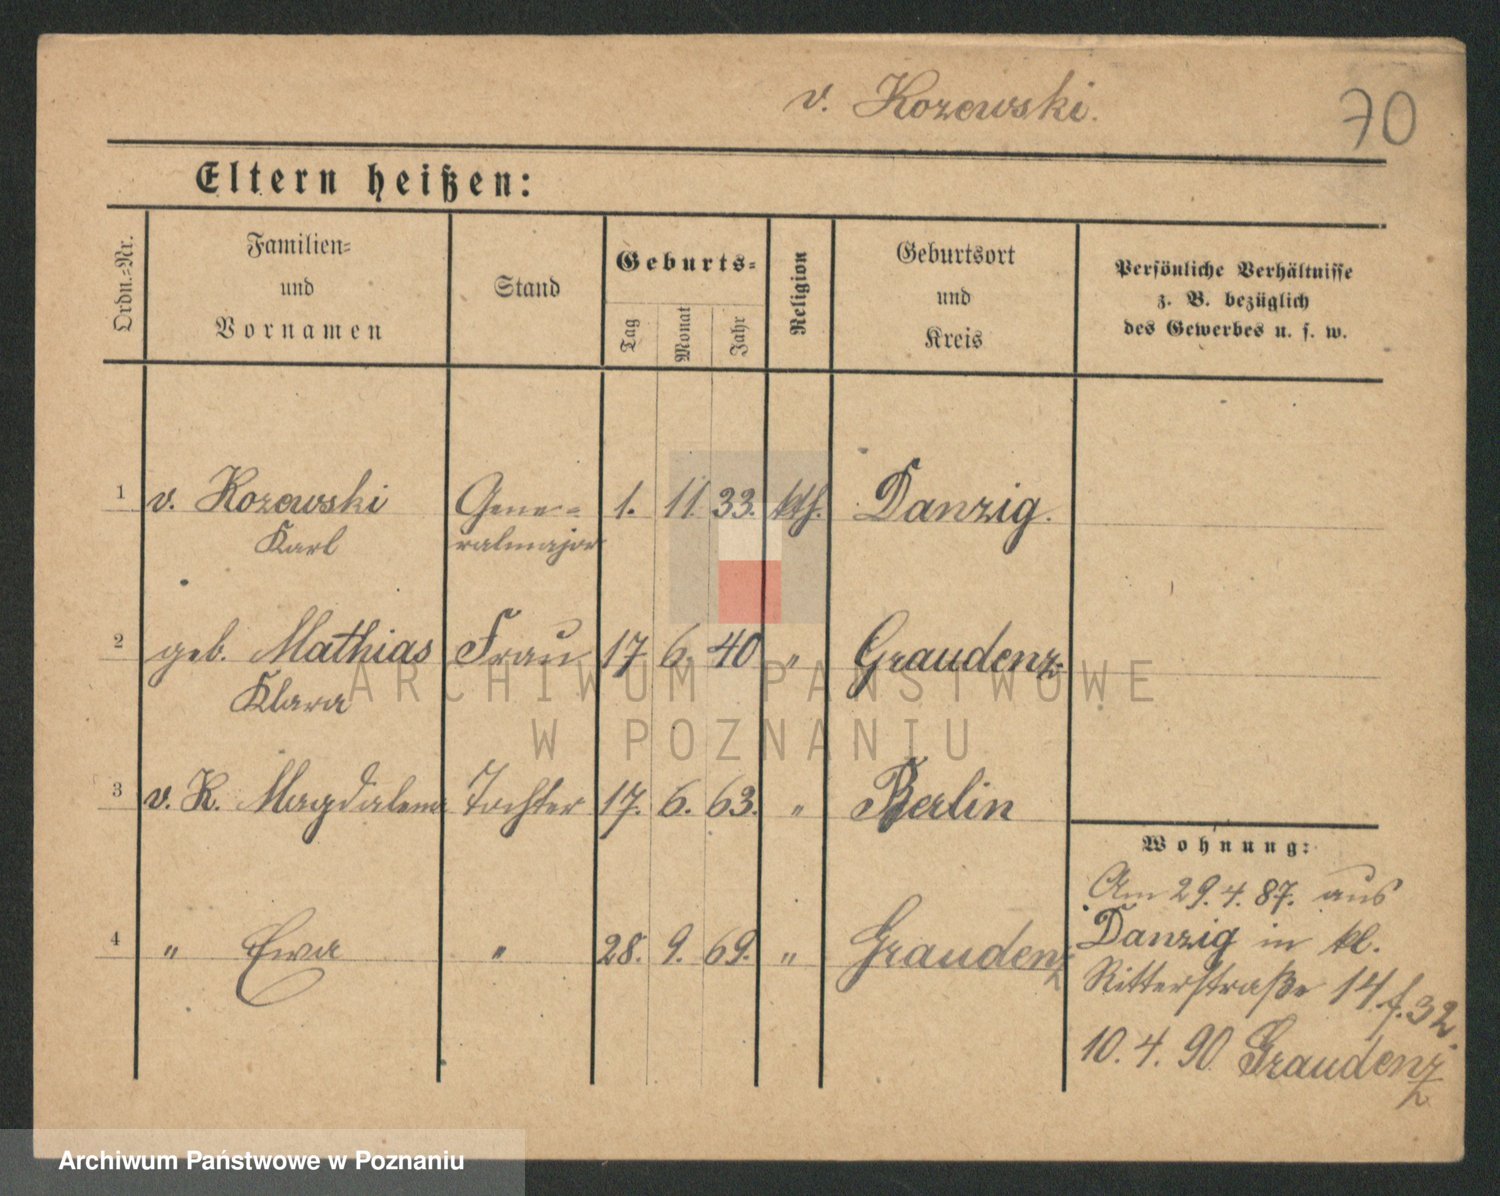 v. Kozewski.
70
Eltern heißen:
Ordn.=Nr.
Familien=
und
Vornamen
Stand
Geburts=
Tag
Monat
Jahr
Religion
Geburtsort
und
Kreis
Persönliche Verhältnisse
z. B. bezüglich
des Gewerbes u. s. w.
1 v. Kozewski Gene= 1. 11. 33. kth. Danzig.
Karl ralmajor
2 geb. Mathias Frau 17 6. 40 " Graudenz.
Klara
3 v. K. Magdalena Tochter 17. 6. 63. " Berlin
4 " Ewa " 28. 9. 69. " Graudenz
Wohnung:
Am 29.4.87. aus
Danzig in kl.
Ritterstraße 14. f. 32.
10. 4. 90 Graudenz
ARCHIWUM PAŃSTWOWE
W POZNANIU
Archiwum Państwowe w Poznaniu